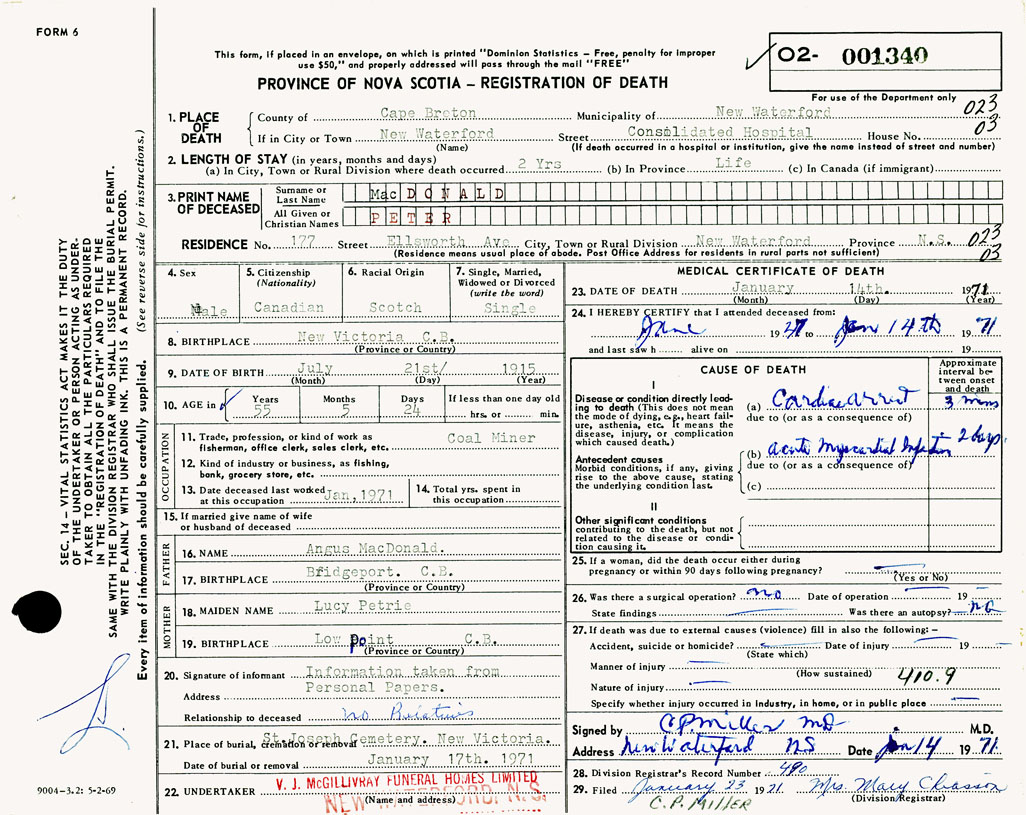 FORM 6
This form, if placed in an envelope, on which is printed "Dominion Statistics – Free, penalty for improper
use $50," and properly addressed will pass through the mail "FREE"
PROVINCE OF NOVA SCOTIA – REGISTRATION OF DEATH
02- 001340
For use of the Department only
023
03
1. PLACE OF DEATH
County of Cape Breton Municipality of New Waterford
If in City or Town New Waterford Street Consolidated Hospital House No.
(Name) (If death occurred in a hospital or institution, give the name instead of street and number)
2. LENGTH OF STAY (in years, months and days)
(a) In City, Town or Rural Division where death occurred 2 Yrs (b) In Province Life (c) In Canada (if immigrant)
3. PRINT NAME OF DECEASED
Surname or Last Name MacDONALD
All Given or Christian Names PETER
RESIDENCE No. 177 Street Ellsworth Ave City, Town or Rural Division New Waterford Province N.S. 023
(Residence means usual place of abode. Post Office Address for residents in rural parts not sufficient) 03
4. Sex
Male
5. Citizenship
(Nationality)
Canadian
6. Racial Origin
Scotch
7. Single, Married,
Widowed or Divorced
(write the word)
Single
8. BIRTHPLACE New Victoria C.B.
(Province or Country)
9. DATE OF BIRTH July 21st/ 1915
(Month) (Day) (Year)
10. AGE in
Years Months Days If less than one day old
55 5 24 hrs. or min.
OCCUPATION
11. Trade, profession, or kind of work as
fisherman, office clerk, sales clerk, etc. Coal Miner
12. Kind of industry or business, as fishing,
bank, grocery store, etc.
13. Date deceased last worked
at this occupation Jan, 1971
14. Total yrs. spent in
this occupation
15. If married give name of wife
or husband of deceased
FATHER
16. NAME Angus MacDonald.
17. BIRTHPLACE Bridgeport. C.B.
(Province or Country)
MOTHER
18. MAIDEN NAME Lucy Petrie
19. BIRTHPLACE Low Point C.B.
(Province or Country)
20. Signature of informant Information taken from
Address Personal Papers.
Relationship to deceased no Relatives
21. Place of burial, cremation or removal St. Joseph Cemetery. New Victoria.
Date of burial or removal January 17th. 1971
22. UNDERTAKER V. J. McGILLIVRAY FUNERAL HOMES LIMITED
(Name and address) NEW WATERFORD, N.S.
MEDICAL CERTIFICATE OF DEATH
23. DATE OF DEATH January 14th. 1971
(Month) (Day) (Year)
24. I HEREBY CERTIFY that I attended deceased from:
June 19 to Jan 14th 1971
and last saw h alive on 19
CAUSE OF DEATH
Approximate
interval be-
tween onset
and death
I
Disease or condition directly lead-
ing to death (This does not mean
the mode of dying, e.g., heart fail-
ure, asthenia, etc. It means the
disease, injury, or complication
which caused death.)
(a) Cardiac arrest 3 mins
due to (or as a consequence of)
Antecedent causes
Morbid conditions, if any, giving
rise to the above cause, stating
the underlying condition last.
(b) acute Myocardial Infarction 2 days
due to (or as a consequence of)
(c)
II
Other significant conditions
contributing to the death, but not
related to the disease or condi-
tion causing it.
25. If a woman, did the death occur either during
pregnancy or within 90 days following pregnancy?
(Yes or No)
26. Was there a surgical operation? no Date of operation 19
State findings Was there an autopsy? no
27. If death was due to external causes (violence) fill in also the following: –
Accident, suicide or homicide? Date of injury 19
(State which)
Manner of injury
(How sustained) 410.9
Nature of injury
Specify whether injury occurred in industry, in home, or in public place
Signed by C.P. Miller MD M.D.
Address New Waterford NS Date Jan 14 1971.
28. Division Registrar's Record Number 490
29. Filed January 23 1971 Mrs. Mary Chiasson
(Division Registrar)
C.P. MILLER
SEC. 14 – VITAL STATISTICS ACT MAKES IT THE DUTY
OF THE UNDERTAKER OR PERSON ACTING AS UNDER-
TAKER TO OBTAIN ALL THE PARTICULARS REQUIRED
IN THE "REGISTRATION OF DEATH" AND TO FILE THE
SAME WITH THE DIVISION REGISTRAR WHO SHALL ISSUE THE BURIAL PERMIT.
WRITE PLAINLY WITH UNFADING INK. THIS IS A PERMANENT RECORD.
Every item of information should be carefully supplied. (See reverse side for instructions.)
9004–3.2: 5-2-69